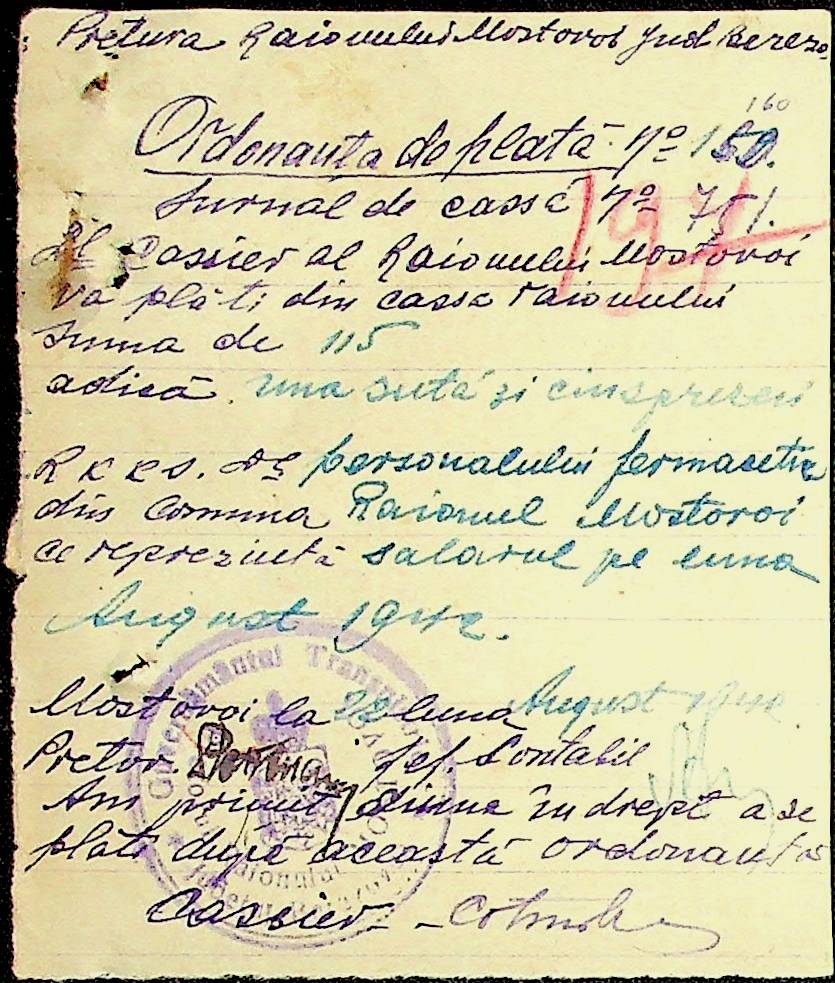 Pretura Raionului Mostovoi Jud Berezo
160
Ordonanța de plată No 1
Jurnal de cassă No 75/.
194
Dl Cassier al Raionului Mostovoi
va plăti din cassa raionului
suma de 115
adică una sută și cinsprezeci
R K K S. Dl personalului fermacetic
din Comuna Raionul Mostovoi
ce reprezintă salarul pe luna
August 1942.
Guvernământul Trans
Mostovoi la 22 luna August 1942
Pretor. Șef. Contabil
Am primit suma în drept a se
plăti după această ordonanță
Raionului
Județul
Cassier -